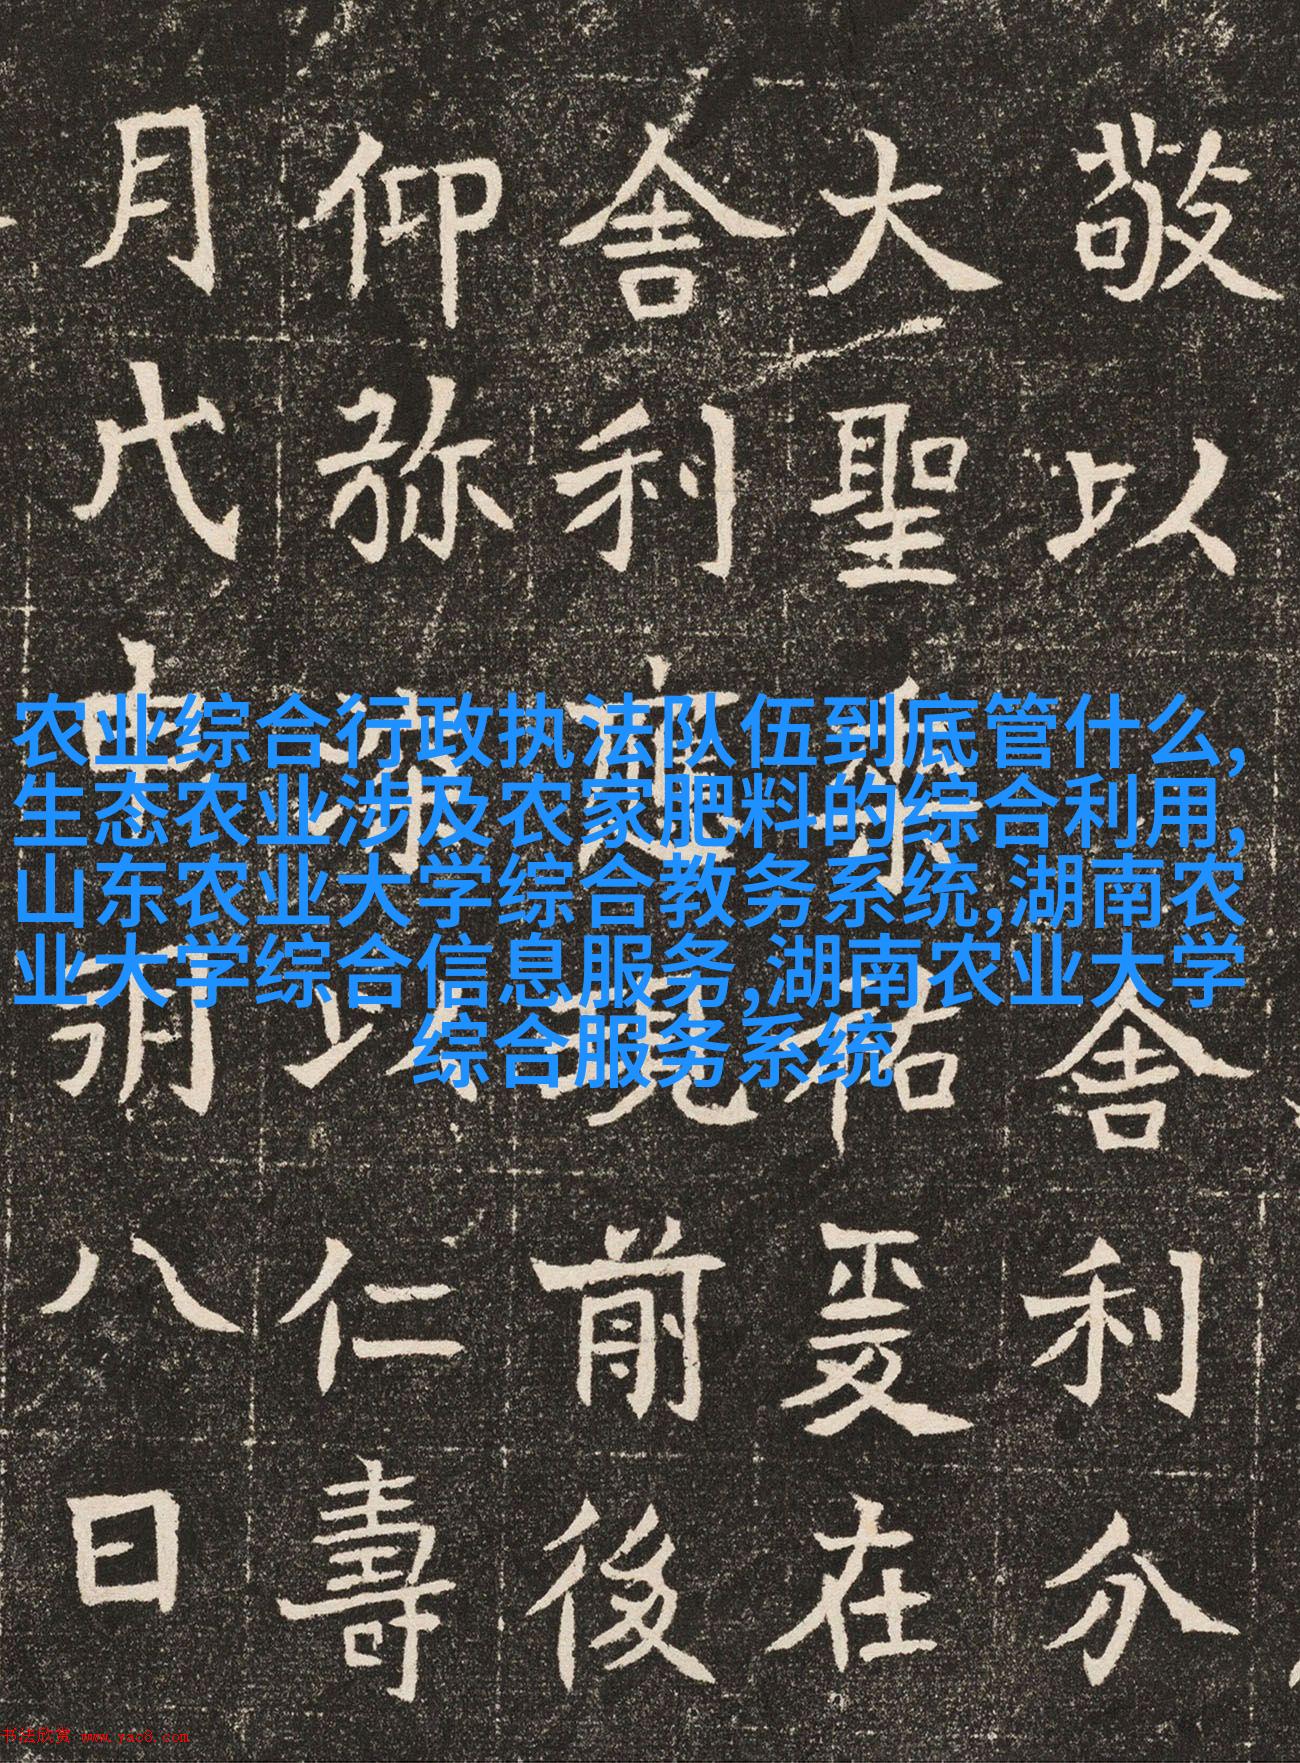 敬以舍利分
大聖祐爰在
舍利前後
仰弥以仁壽
月八日
农业综合行政执法队伍到底管什么,
生态农业涉及农家肥料的综合利用,
山东农业大学综合教务系统,湖南农
业大学综合信息服务,湖南农业大学
综合服务系统
书法欣赏 www.yac8.com